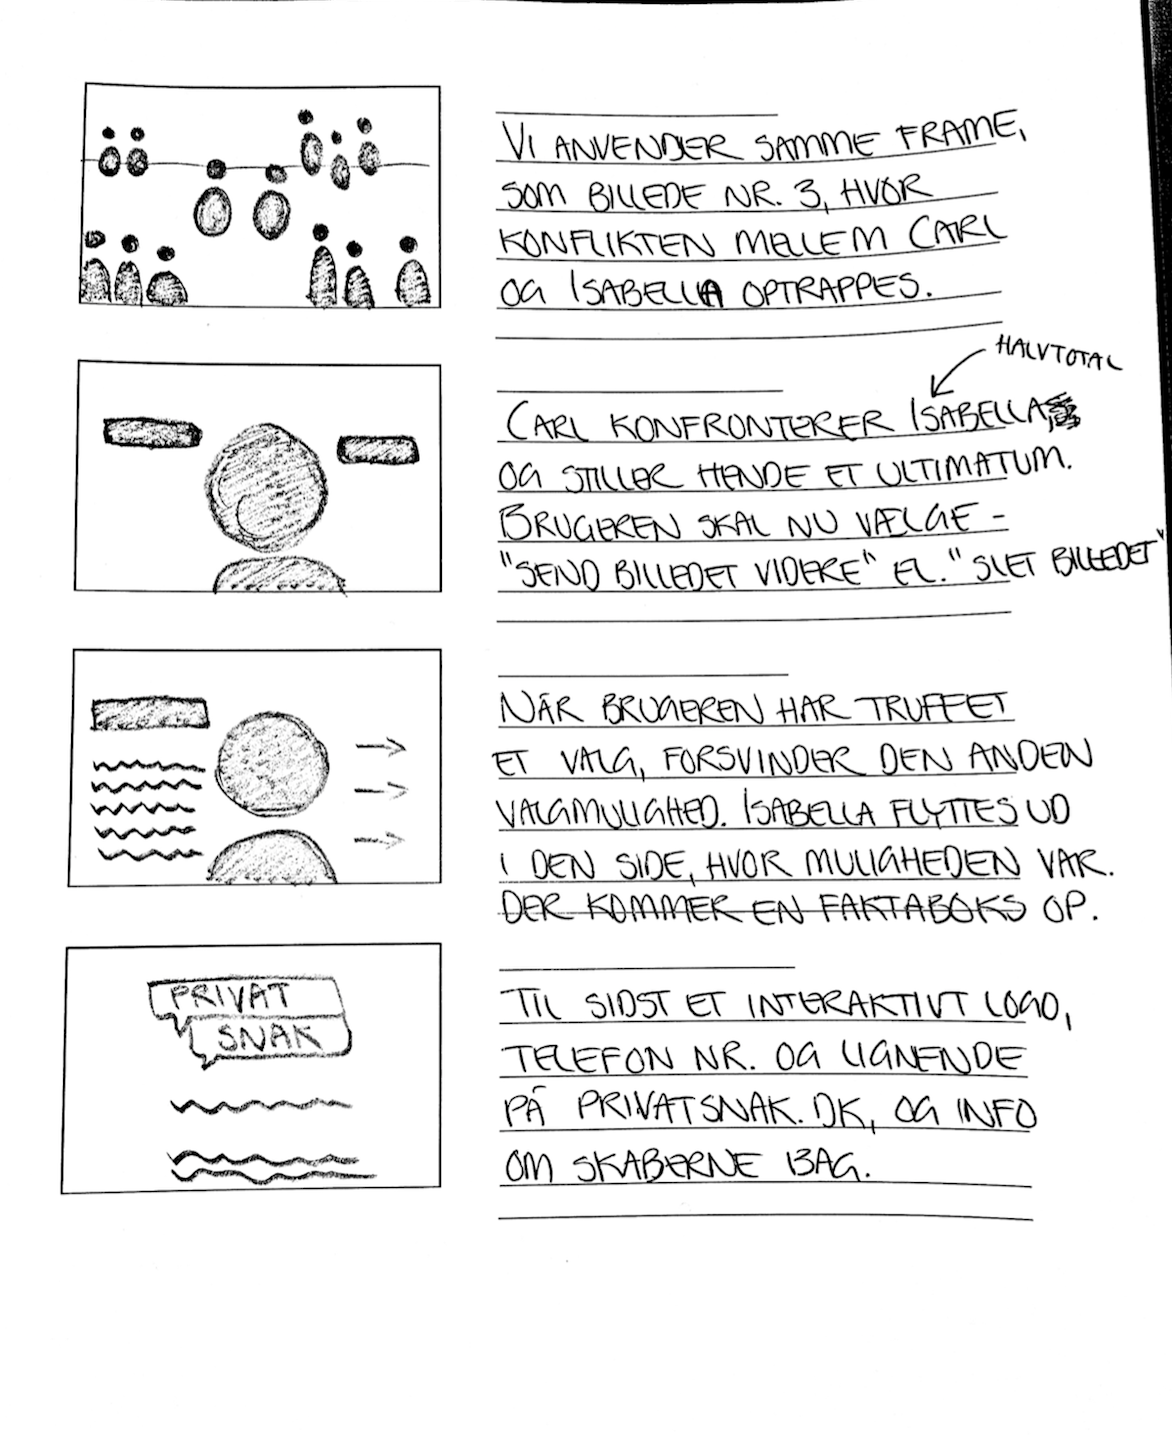 VI ANVENDER SAMME FRAME,
SOM BILLEDE NR. 3, HVOR
KONFLIKTEN MELLEM CARL
OG ISABELLA OPTRAPPES.
HALVTOTAL
CARL KONFRONTERER ISABELLA,
OG STILLER HENDE ET ULTIMATUM.
BRUGEREN SKAL NU VÆLGE -
"SEND BILLEDET VIDERE" EL. "SLET BILLEDET"
NÅR BRUGEREN HAR TRUFFET
ET VALG, FORSVINDER DEN ANDEN
VALGMULIGHED. ISABELLA FLYTTES UD
I DEN SIDE, HVOR MULIGHEDEN VAR.
DER KOMMER EN FAKTABOKS OP.
PRIVAT
SNAK
TIL SIDST ET INTERAKTIVT LOGO,
TELEFON NR. OG LIGNENDE
PÅ PRIVATSNAK.DK, OG INFO
OM SKABERNE BAG.